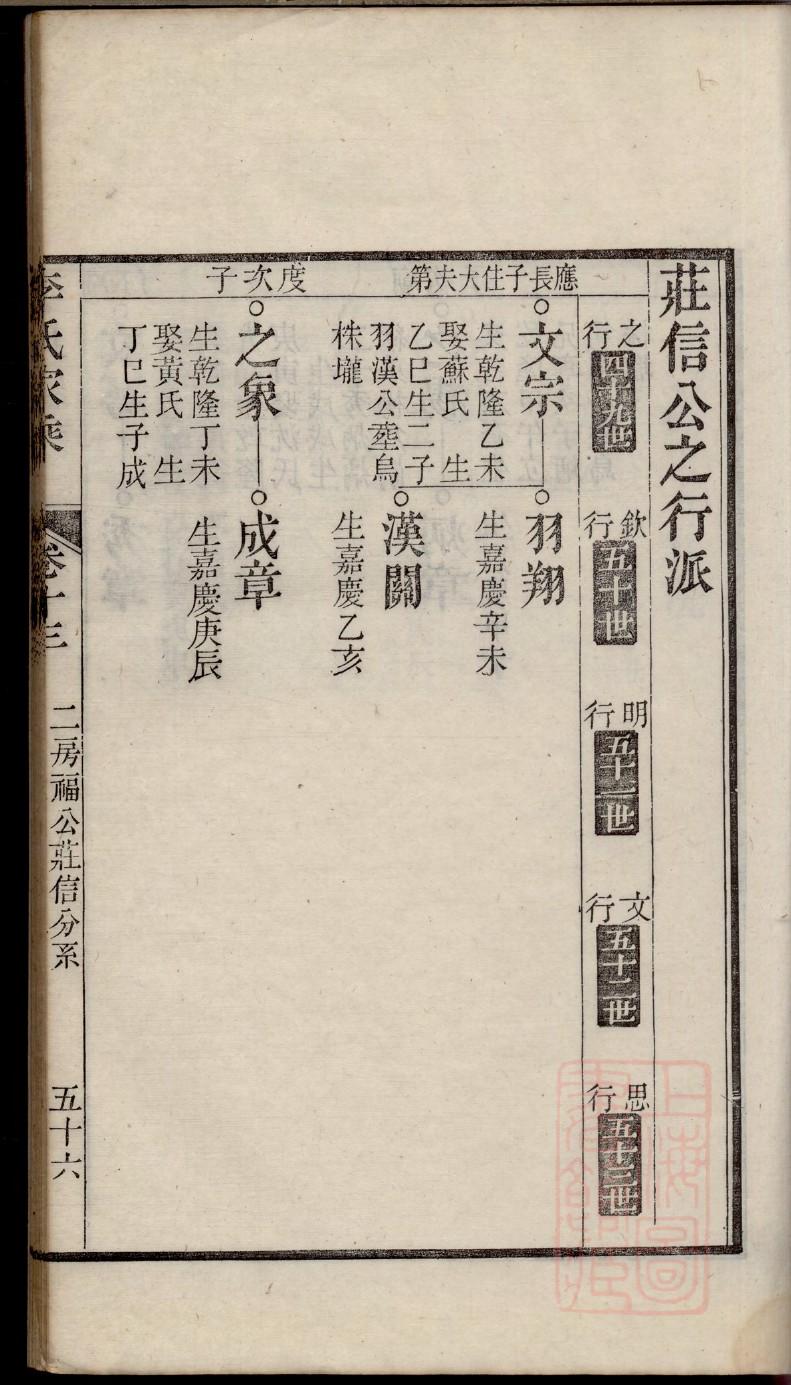 莊信公之行派
之行 四十九世
欽行 五十世
明行 五十一世
文行 五十二世
思行 五十三世
應長子住大夫第
文宗
生乾隆乙未
娶蘇氏 生
乙巳生二子
羽漢公塟烏
株壠
羽翔
生嘉慶辛未
漢關
生嘉慶乙亥
度次子
之象
生乾隆丁未
娶黃氏 生
丁巳生子成
成章
生嘉慶庚辰
李氏家乘
卷十三
二房福公莊信分系
五十六
上海圖書館藏